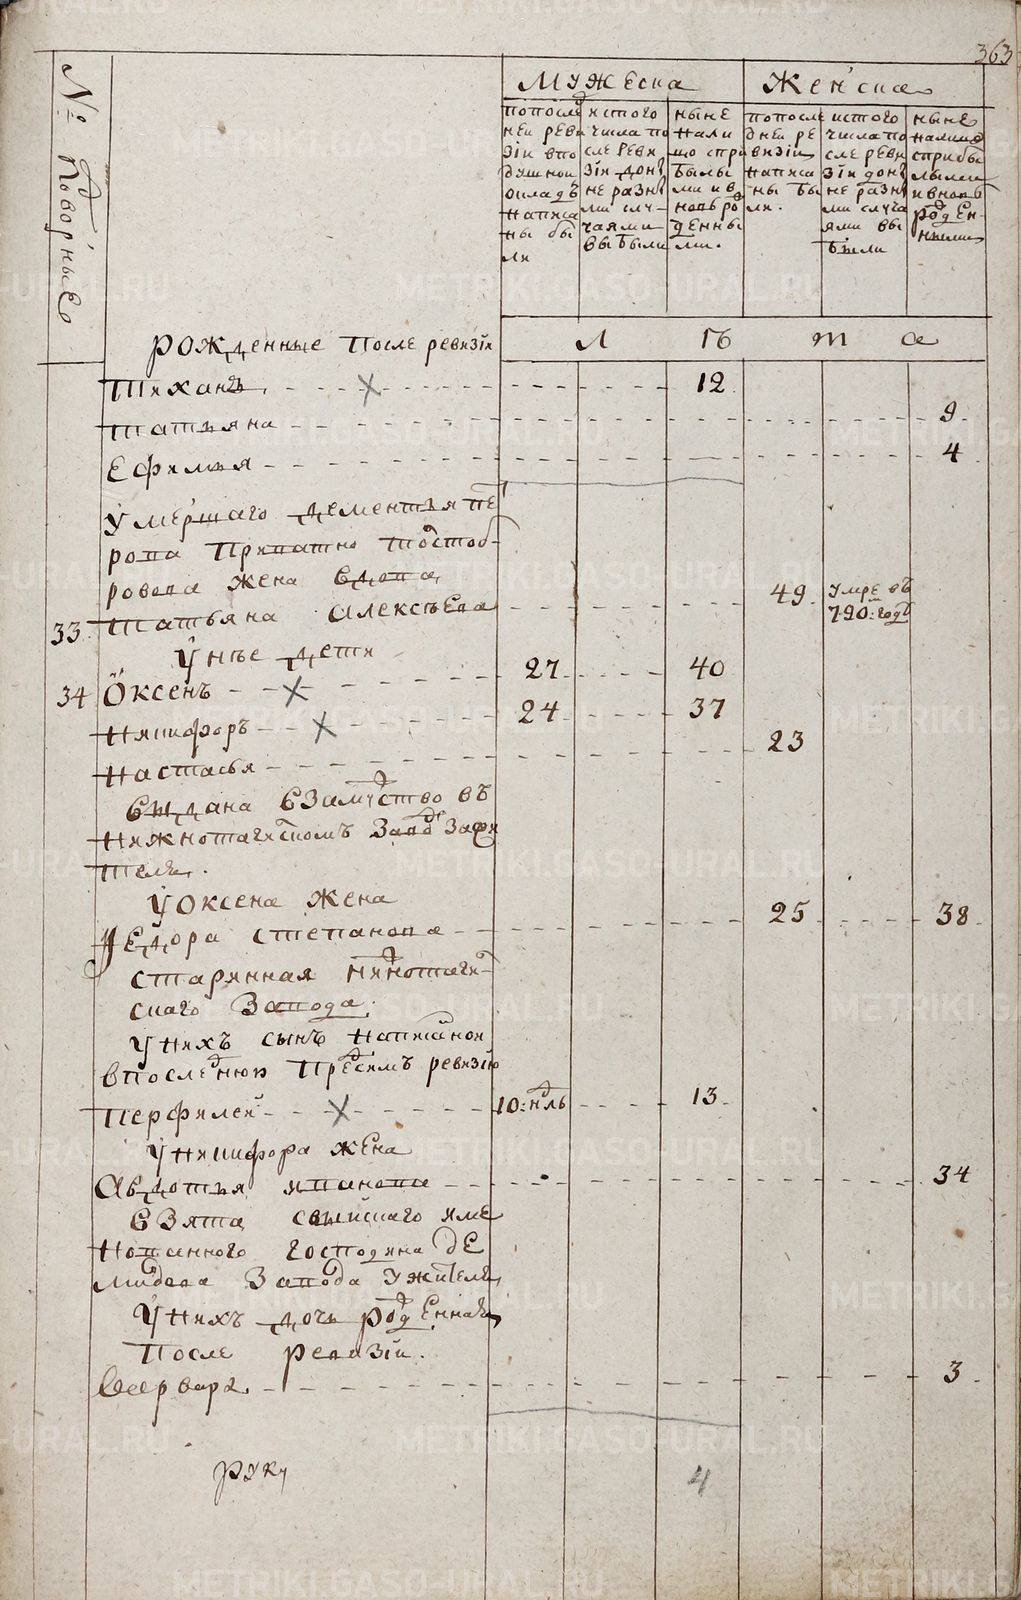 363
№ Подворные
Мужеска
Женска
по после
дней реви
зіи впо
душной
окладъ
написа
ны бы
ли
истого
числа по
сле реви
зіи дон҃
не разны
ми слу
чаями
выбыли
ныне
нали
цо спри
былы
ми и в
новь ро
жденны
ми.
по после
дней ре
визіи
написа
ны бы
ли.
истого
числа по
сле реви
зіи дон҃
не разны
ми случа
ями вы
были
ныне
налицо
сприбы
лыми
ивновь
рожден
ными
лѣта
рожденные после ревизіи
Тиханъ - - - 12
татьяна - - - 9
Ефимья - - - 4
умершаго дементья пе
рова
рова жена вдова
33 татьяна Алексѣева - - - 49 умре въ
790: годѣ
у нѣе дети
34 Оксенъ - - - 27 - - - 40
никифоръ - - - 24 - - - 37
настасья - - - 23
выдана взамуство въ
нижнотагилскомъ заводѣ
у Оксена жена
Ѳедора степанова - - - 25 - - - 38
старинная нижнотагил
скаго завода.
у нихъ сынъ написанной
в последнюю пред симъ ревизію
перфилей - - - 10: нд҃ль - - - 13
у никифора жена
Авдотья иванова - - - 34
взята свышшаго име
нованного господина де
мидова завода у жителя
у нихъ дочь рожденная
после ревизіи.
- - - 3
4